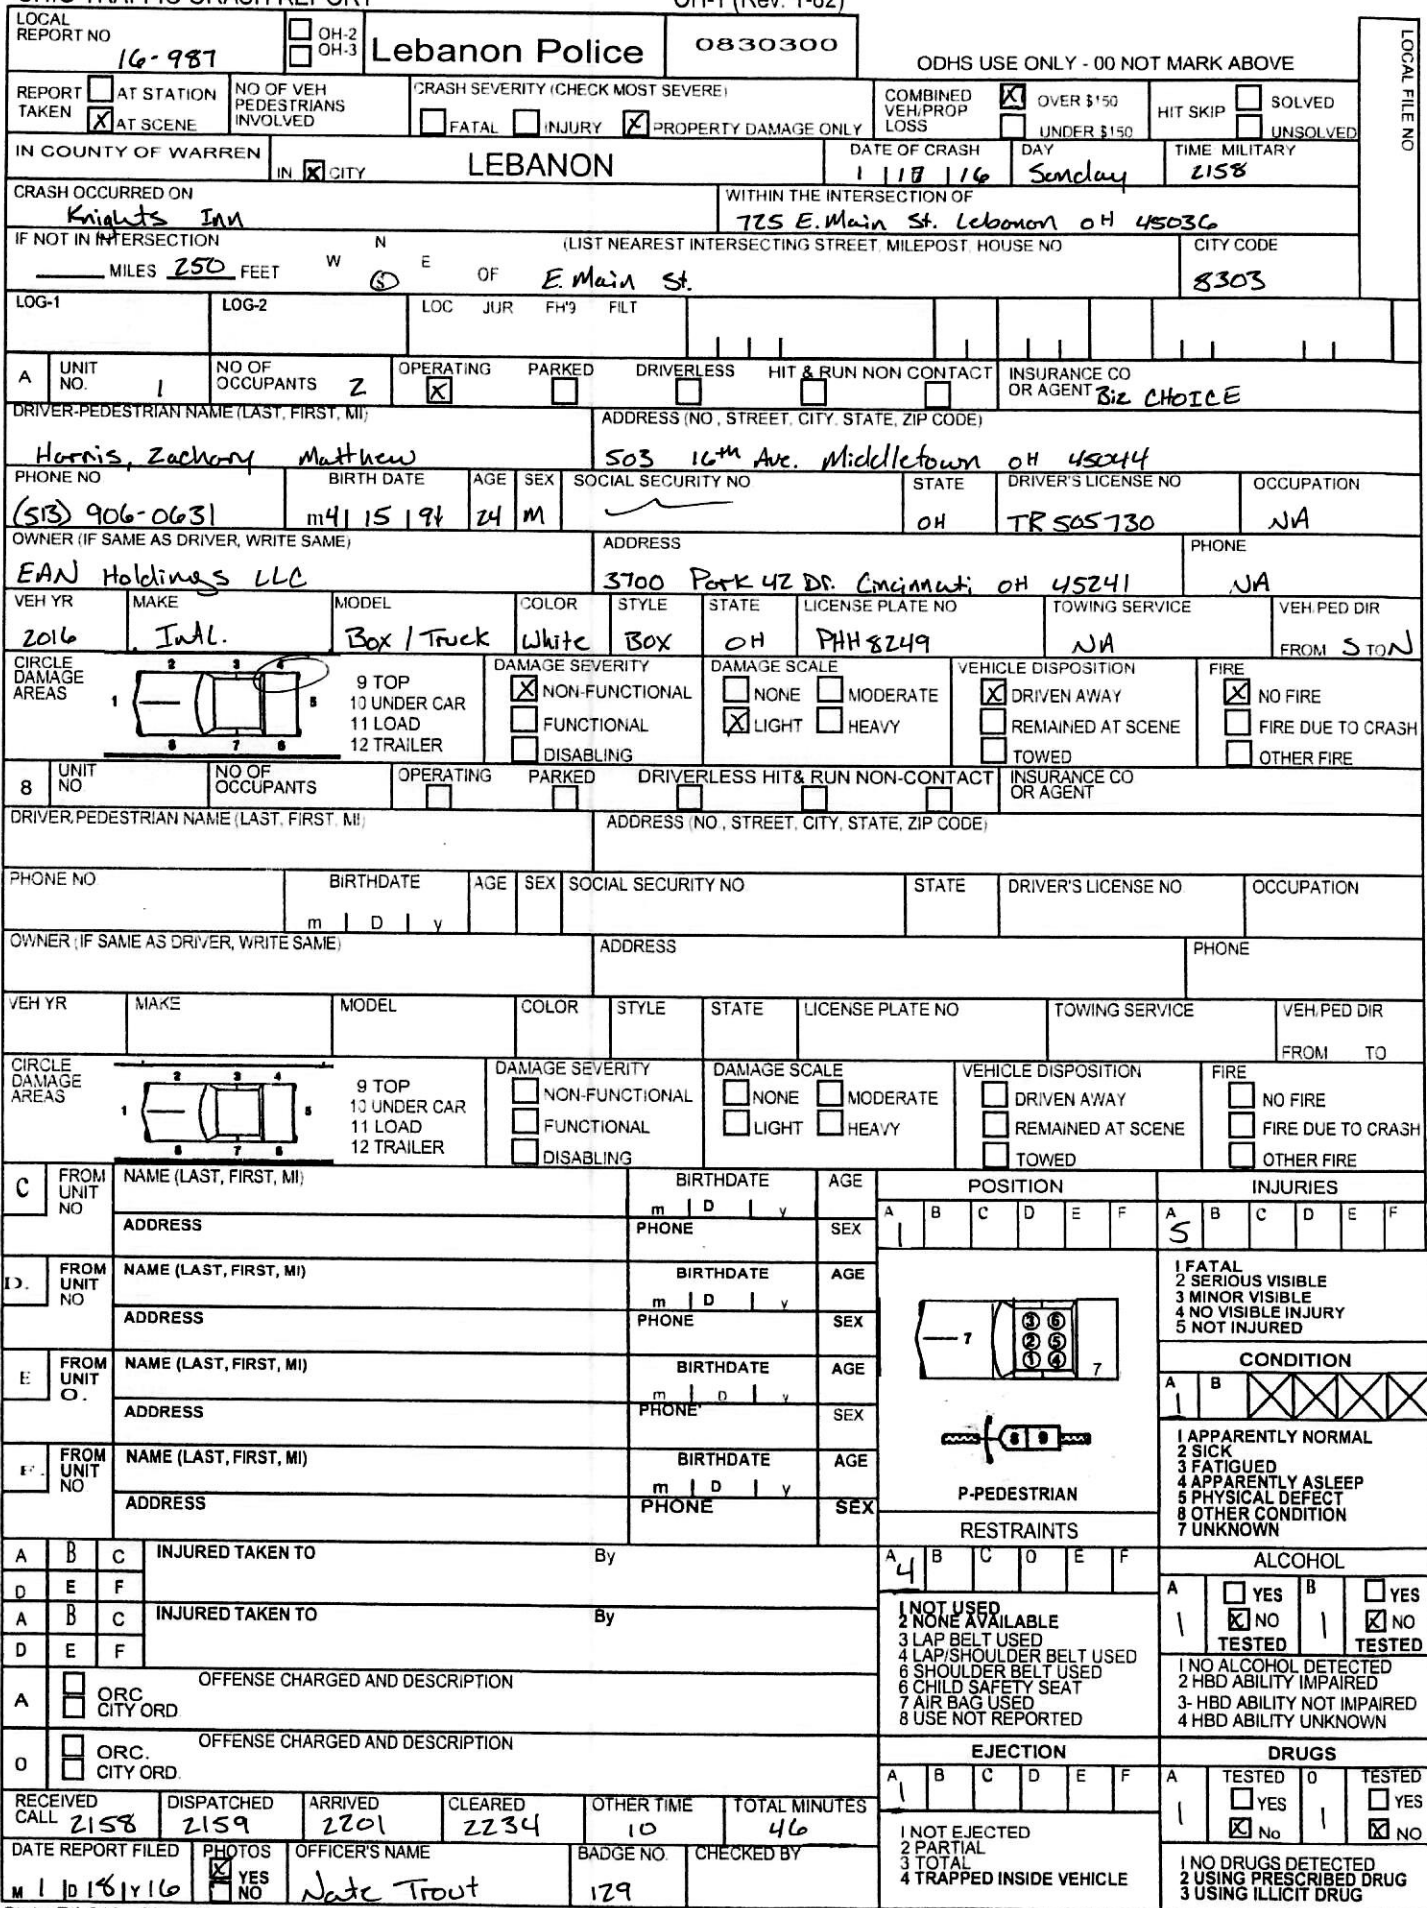 OHIO TRAFFIC CRASH REPORT OH-1 (Rev. 1-82)
LOCAL REPORT NO 16-987 OH-2 OH-3 Lebanon Police 0830300 ODHS USE ONLY - 00 NOT MARK ABOVE LOCAL FILE NO
REPORT TAKEN AT STATION X AT SCENE NO OF VEH PEDESTRIANS INVOLVED CRASH SEVERITY (CHECK MOST SEVERE) FATAL INJURY X PROPERTY DAMAGE ONLY COMBINED VEH/PROP LOSS X OVER $150 UNDER $150 HIT SKIP SOLVED UNSOLVED
IN COUNTY OF WARREN IN X CITY LEBANON DATE OF CRASH 1 | 17 | 16 DAY Sunday TIME MILITARY 2158
CRASH OCCURRED ON Knights Inn WITHIN THE INTERSECTION OF 725 E. Main St. Lebanon OH 45036
IF NOT IN INTERSECTION MILES 250 FEET N W E S OF (LIST NEAREST INTERSECTING STREET, MILEPOST, HOUSE NO E. Main St. CITY CODE 8303
LOG-1 LOG-2 LOC JUR FH'9 FILT
A UNIT NO. 1 NO OF OCCUPANTS 2 OPERATING X PARKED DRIVERLESS HIT & RUN NON CONTACT INSURANCE CO OR AGENT Biz CHOICE
DRIVER-PEDESTRIAN NAME (LAST, FIRST, MI) Harris, Zachary Matthew ADDRESS (NO, STREET, CITY, STATE, ZIP CODE) 503 16th Ave. Middletown OH 45044
PHONE NO (513) 906-0631 BIRTH DATE m4| 15 | 91 AGE 24 SEX M SOCIAL SECURITY NO STATE OH DRIVER'S LICENSE NO TR505730 OCCUPATION NA
OWNER (IF SAME AS DRIVER, WRITE SAME) EAN Holdings LLC ADDRESS 3700 Park 42 Dr. Cincinnati OH 45241 PHONE NA
VEH YR 2016 MAKE Intl. MODEL Box / Truck COLOR White STYLE BOX STATE OH LICENSE PLATE NO PHH8249 TOWING SERVICE NA VEH, PED DIR FROM S TO N
CIRCLE DAMAGE AREAS 1 2 3 4 5 6 7 8 9 TOP 10 UNDER CAR 11 LOAD 12 TRAILER DAMAGE SEVERITY X NON-FUNCTIONAL FUNCTIONAL DISABLING DAMAGE SCALE NONE MODERATE X LIGHT HEAVY VEHICLE DISPOSITION X DRIVEN AWAY REMAINED AT SCENE TOWED FIRE X NO FIRE FIRE DUE TO CRASH OTHER FIRE
8 UNIT NO NO OF OCCUPANTS OPERATING PARKED DRIVERLESS HIT& RUN NON-CONTACT INSURANCE CO OR AGENT
DRIVER, PEDESTRIAN NAME (LAST, FIRST, MI) ADDRESS (NO., STREET, CITY, STATE, ZIP CODE)
PHONE NO BIRTHDATE m | D | y AGE SEX SOCIAL SECURITY NO STATE DRIVER'S LICENSE NO OCCUPATION
OWNER (IF SAME AS DRIVER, WRITE SAME) ADDRESS PHONE
VEH YR MAKE MODEL COLOR STYLE STATE LICENSE PLATE NO TOWING SERVICE VEH, PED DIR FROM TO
CIRCLE DAMAGE AREAS 1 2 3 4 5 6 7 8 9 TOP 10 UNDER CAR 11 LOAD 12 TRAILER DAMAGE SEVERITY NON-FUNCTIONAL FUNCTIONAL DISABLING DAMAGE SCALE NONE MODERATE LIGHT HEAVY VEHICLE DISPOSITION DRIVEN AWAY REMAINED AT SCENE TOWED FIRE NO FIRE FIRE DUE TO CRASH OTHER FIRE
C FROM UNIT NO NAME (LAST, FIRST, MI) BIRTHDATE m | D | y AGE
ADDRESS PHONE SEX
D. FROM UNIT NO NAME (LAST, FIRST, MI) BIRTHDATE m | D | y AGE
ADDRESS PHONE SEX
E FROM UNIT O. NAME (LAST, FIRST, MI) BIRTHDATE m | D | y AGE
ADDRESS PHONE SEX
F. FROM UNIT NO NAME (LAST, FIRST, MI) BIRTHDATE m | D | y AGE
ADDRESS PHONE SEX
POSITION
A 1 B C D E F
7 3 6 2 5 1 4 7
8 9
P-PEDESTRIAN
INJURIES
A 5 B C D E F
1 FATAL
2 SERIOUS VISIBLE
3 MINOR VISIBLE
4 NO VISIBLE INJURY
5 NOT INJURED
CONDITION
A 1 B
1 APPARENTLY NORMAL
2 SICK
3 FATIGUED
4 APPARENTLY ASLEEP
5 PHYSICAL DEFECT
8 OTHER CONDITION
7 UNKNOWN
A B C INJURED TAKEN TO By
D E F
A B C INJURED TAKEN TO By
D E F
A ORC CITY ORD OFFENSE CHARGED AND DESCRIPTION
O ORC. CITY ORD. OFFENSE CHARGED AND DESCRIPTION
RESTRAINTS
A 4 B C O E F
1 NOT USED
2 NONE AVAILABLE
3 LAP BELT USED
4 LAP/SHOULDER BELT USED
6 SHOULDER BELT USED
6 CHILD SAFETY SEAT
7 AIR BAG USED
8 USE NOT REPORTED
ALCOHOL
A 1 YES X NO TESTED B 1 YES X NO TESTED
1 NO ALCOHOL DETECTED
2 HBD ABILITY IMPAIRED
3- HBD ABILITY NOT IMPAIRED
4 HBD ABILITY UNKNOWN
EJECTION
A 1 B C D E F
1 NOT EJECTED
2 PARTIAL
3 TOTAL
4 TRAPPED INSIDE VEHICLE
DRUGS
A 1 TESTED YES X No O 1 TESTED YES X NO
1 NO DRUGS DETECTED
2 USING PRESCRIBED DRUG
3 USING ILLICIT DRUG
RECEIVED CALL 2158 DISPATCHED 2159 ARRIVED 2201 CLEARED 2234 OTHER TIME 10 TOTAL MINUTES 46
DATE REPORT FILED M 1 |D 18 |Y 16 PHOTOS X YES NO OFFICER'S NAME Nate Trout BADGE NO. 129 CHECKED BY